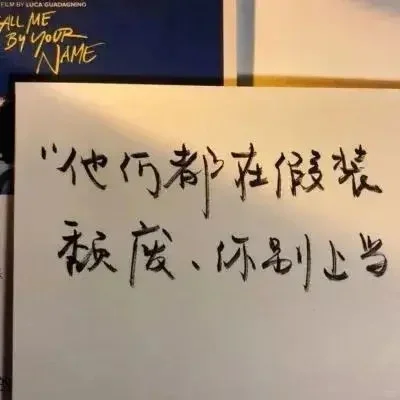 FILM BY LUCA GUADAGNINO
CALL ME
BY YOUR
NAME
"他们都在假装
颓废、你别上当